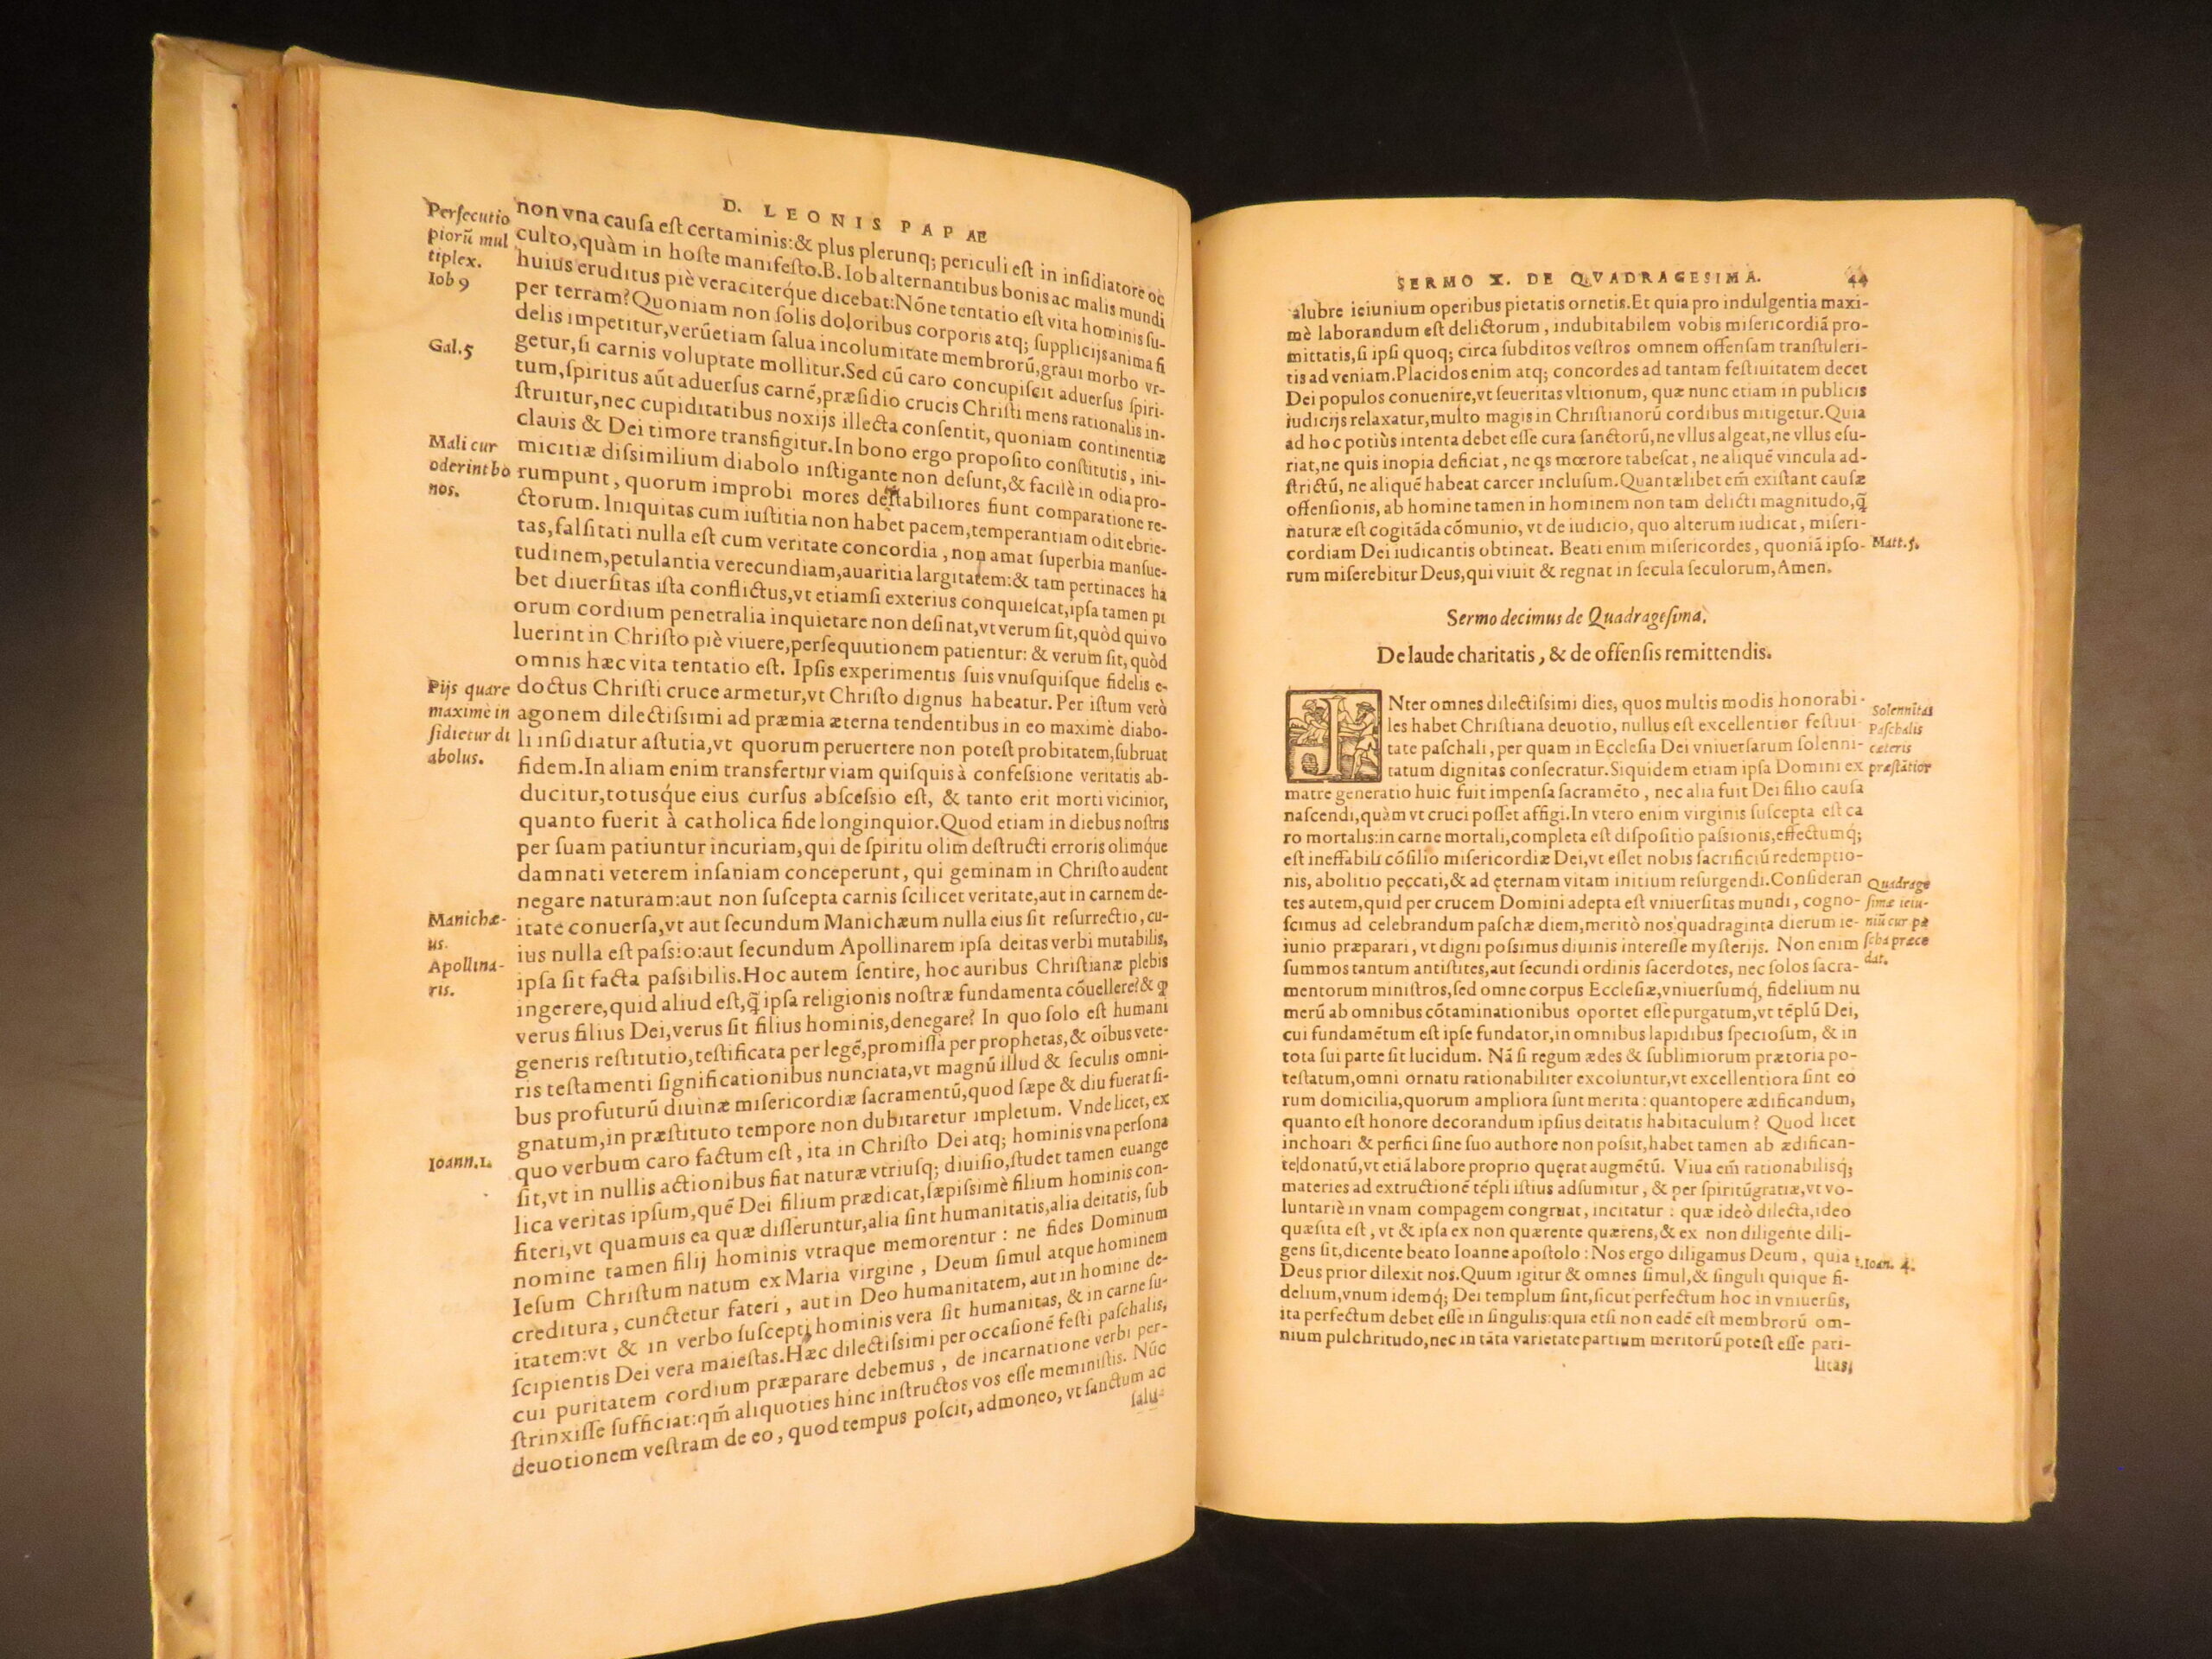 D. LEONIS PAPAE
Perſecutio
piorũ mul
tiplex.
Iob 9
Gal.5
Mali cur
oderint bo
nos.
Pijs quare
maximè in
ſidietur di
abolus.
Manichæ-
us.
Apollina-
ris.
Ioann.1.
non vna cauſa eſt certaminis:& plus plerunq; periculi eſt in inſidiatore oc
culto,quàm in hoſte manifeſto.B.Iob alternantibus bonis ac malis mundi
huius eruditus piè veraciterq́ue dicebat:Nóne tentatio eſt vita hominis ſu-
per terram?Quoniam non ſolis doloribus corporis atq; ſupplicijs anima fi
delis impetitur,verũetiam ſalua incolumitate membrorũ,graui morbo vr-
getur,ſi carnis voluptate mollitur.Sed cũ caro concupiſcit aduerſus ſpiri-
tum,ſpiritus aũt aduerſus carnẽ,præſidio crucis Chriſti mens rationalis in-
ſtruitur,nec cupiditatibus noxijs illecta conſentit, quoniam continentiæ
clauis & Dei timore transfigitur.In bono ergo propoſito conſtitutis, ini-
micitiæ diſsimilium diabolo inſtigante non deſunt,& facilè in odia pro-
rumpunt, quorum improbi mores deſtabiliores fiunt comparatione re-
ctorum. Iniquitas cum iuſtitia non habet pacem,temperantiam odit ebrie-
tas,falſitati nulla eſt cum veritate concordia, non amat ſuperbia manſue-
tudinem,petulantia verecundiam,auaritia largitatem:& tam pertinaces ha
bet diuerſitas iſta conflictus,vt etiamſi exterius conquieſcat,ipſa tamen pi
orum cordium penetralia inquietare non deſinat,vt verum ſit,quòd qui vo
luerint in Chriſto piè viuere,perſequutionem patientur: & verum ſit,quòd
omnis hæc vita tentatio eſt. Ipſis experimentis ſuis vnuſquiſque fidelis e-
doctus Chriſti cruce armetur,vt Chriſto dignus habeatur. Per iſtum verò
agonem dilectiſsimi ad præmia æterna tendentibus in eo maximè diabo-
li inſidiatur aſtutia,vt quorum peruertere non poteſt probitatem,ſubruat
fidem.In aliam enim transfertur viam quiſquis à confeſsione veritatis ab-
ducitur,totusq́ue eius curſus abſceſsio eſt, & tanto erit morti vicinior,
quanto fuerit à catholica fide longinquior.Quod etiam in diebus noſtris
per ſuam patiuntur incuriam,qui de ſpiritu olim deſtructi erroris olimq́ue
damnati veterem inſaniam conceperunt, qui geminam in Chriſto audent
negare naturam:aut non ſuſcepta carnis ſcilicet veritate,aut in carnem de-
itate conuerſa,vt aut ſecundum Manichæum nulla eius ſit reſurrectio, cu-
ius nulla eſt paſsio:aut ſecundum Apollinarem ipſa deitas verbi mutabilis,
ipſa ſit facta paſsibilis.Hoc autem ſentire, hoc auribus Chriſtianæ plebis
ingerere,quid aliud eſt,q̃ ipſa religionis noſtræ fundamenta cõuellere?& ꝙ
verus filius Dei,verus ſit filius hominis,denegare? In quo ſolo eſt humani
generis reſtitutio,teſtificata per legẽ,promiſſa per prophetas,& oĩbus vete-
ris teſtamenti ſignificationibus nunciata,vt magnũ illud & ſeculis omni-
bus profuturũ diuinæ miſericordiæ ſacramentũ,quod ſæpe & diu fuerat ſi-
gnatum,in præſtituto tempore non dubitaretur impletum. Vnde licet, ex
quo verbum caro factum eſt, ita in Chriſto Dei atq; hominis vna perſona
ſit,vt in nullis actionibus fiat naturæ vtriuſq; diuiſio,ſtudet tamen euange
lica veritas ipſum,quẽ Dei filium prædicat,ſæpiſsimè filium hominis con-
fiteri,vt quamuis ea quæ diſſeruntur,alia ſint humanitatis,alia deitatis, ſub
nomine tamen filij hominis vtraque memorentur : ne fides Dominum
Ieſum Chriſtum natum ex Maria virgine, Deum ſimul atque hominem
creditura, cunctetur fateri, aut in Deo humanitatem, aut in homine de-
itatem:vt & in verbo ſuſcepti hominis vera ſit humanitas, & in carne ſu-
ſcipientis Dei vera maieſtas.Hæc dilectiſsimi per occaſionẽ feſti paſchalis,
cui puritatem cordium præparare debemus, de incarnatione verbi per-
ſtrinxiſſe ſufficiat:qm̃ aliquoties hinc inſtructos vos eſſe meminiſtis. Nũc
deuotionem veſtram de eo, quod tempus poſcit, admoneo, vt ſanctum ac
ſalu-
SERMO X. DE QVADRAGESIMA. 44
alubre ieiunium operibus pietatis ornetis.Et quia pro indulgentia maxi-
mè laborandum eſt delictorum, indubitabilem vobis miſericordiã pro-
mittatis,ſi ipſi quoq; circa ſubditos veſtros omnem offenſam tranſtuleri-
tis ad veniam.Placidos enim atq; concordes ad tantam feſtiuitatem decet
Dei populos conuenire,vt ſeueritas vltionum, quæ nunc etiam in publicis
iudicijs relaxatur,multo magis in Chriſtianorũ cordibus mitigetur.Quia
ad hoc potiùs intenta debet eſſe cura ſanctorũ,ne vllus algeat,ne vllus eſu-
riat,ne quis inopia deficiat, ne qs mœrore tabeſcat, ne aliquẽ vincula ad-
ſtrictũ, ne aliquẽ habeat carcer incluſum.Quantælibet em̃ exiſtant cauſæ
offenſionis, ab homine tamen in hominem non tam delicti magnitudo,q̃
naturæ eſt cogitãda cõmunio, vt de iudicio, quo alterum iudicat, miſeri-
cordiam Dei iudicantis obtineat. Beati enim miſericordes, quoniã ipſo-
rum miſerebitur Deus,qui viuit & regnat in ſecula ſeculorum, Amen.
Matt.5.
Sermo decimus de Quadrageſima.
De laude charitatis, & de offenſis remittendis.
INter omnes dilectiſsimi dies, quos multis modis honorabi-
les habet Chriſtiana deuotio, nullus eſt excellentior feſtiui-
tate paſchali, per quam in Eccleſia Dei vniuerſarum ſolenni-
tatum dignitas conſecratur.Siquidem etiam ipſa Domini ex
matre generatio huic fuit impenſa ſacramẽto, nec alia fuit Dei filio cauſa
naſcendi,quàm vt cruci poſſet affigi.In vtero enim virginis ſuſcepta eſt ca
ro mortalis:in carne mortali,completa eſt diſpoſitio paſsionis,effectumq́;
eſt ineffabili cõſilio miſericordiæ Dei,vt eſſet nobis ſacrificiũ redemptio-
nis, abolitio peccati,& ad ęternam vitam initium reſurgendi.Conſideran
tes autem,quid per crucem Domini adepta eſt vniuerſitas mundi, cogno-
ſcimus ad celebrandum paſchæ diem,meritò nos quadraginta dierum ie-
iunio præparari, vt digni poſsimus diuinis intereſſe myſterijs. Non enim
ſummos tantum antiſtites,aut ſecundi ordinis ſacerdotes, nec ſolos ſacra-
mentorum miniſtros,ſed omne corpus Eccleſiæ,vniuerſumq́; fidelium nu
merũ ab omnibus cõtaminationibus oportet eſſe purgatum,vt tẽplũ Dei,
cui fundamẽtum eſt ipſe fundator,in omnibus lapidibus ſpecioſum, & in
tota ſui parte ſit lucidum. Nã ſi regum ædes & ſublimiorum prætoria po-
teſtatum,omni ornatu rationabiliter excoluntur,vt excellentiora ſint eo
rum domicilia,quorum ampliora ſunt merita : quantopere ædificandum,
quanto eſt honore decorandum ipſius deitatis habitaculum? Quod licet
inchoari & perfici ſine ſuo authore non poſsit,habet tamen ab ædifican-
te donatũ,vt etiã labore proprio quęrat augmẽtũ. Viua em̃ rationabilisq́;
materies ad extructionẽ tẽpli iſtius adſumitur, & per ſpiritũ gratiæ,vt vo-
luntariè in vnam compagem congruat, incitatur : quæ ideò dilecta,ideo
quæſita eſt, vt & ipſa ex non quærente quærens,& ex non diligente dili-
gens ſit,dicente beato Ioanne apoſtolo : Nos ergo diligamus Deum, quia
Deus prior dilexit nos.Quum igitur & omnes ſimul,& ſinguli quique fi-
delium,vnum idemq́; Dei templum ſint,ſicut perfectum hoc in vniuerſis,
ita perfectum debet eſſe in ſingulis:quia etſi non eadẽ eſt membrorũ om-
nium pulchritudo,nec in tãta varietate partium meritorũ poteſt eſſe pari-
litas,
Solennitas
Paſchalis
cæteris
præſtãtior
Quadrage
ſimæ ieiu-
niũ cur pa
ſcha præce
dat.
1.Ioan. 4.